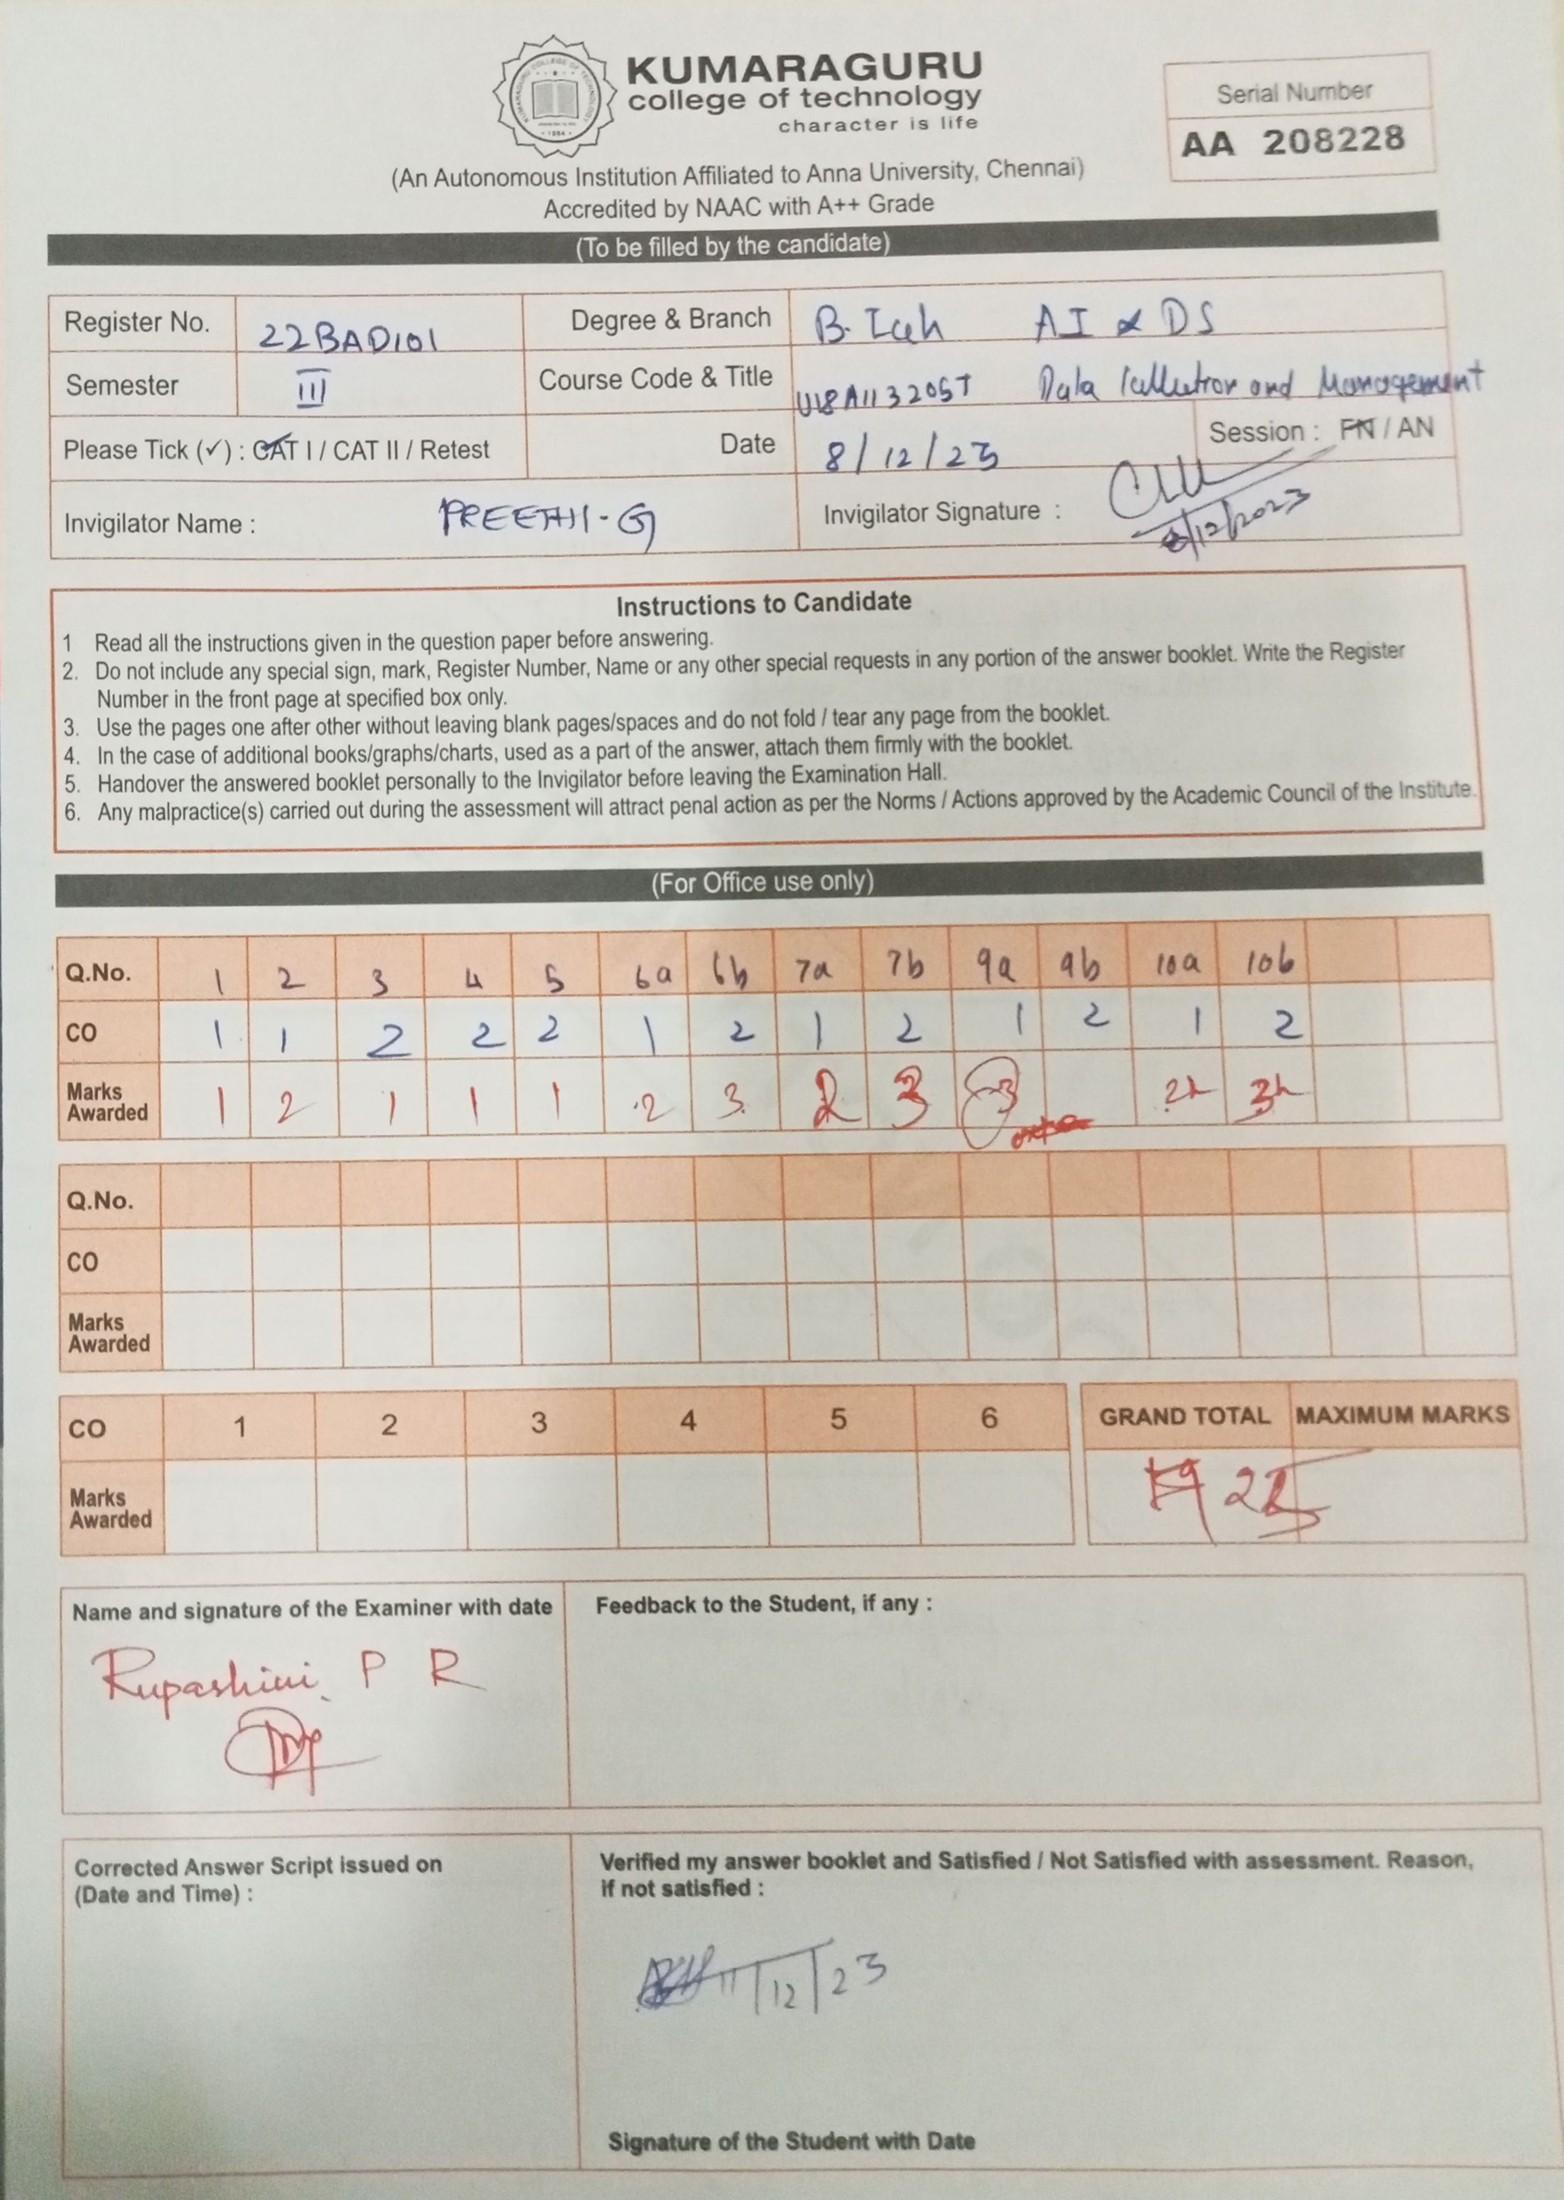 KUMARAGURU
college of technology
character is life
Serial Number
AA 208228
(An Autonomous Institution Affiliated to Anna University, Chennai)
Accredited by NAAC with A++ Grade
(To be filled by the candidate)
Register No. 22BAD101 Degree & Branch B.Tech AI & DS
Semester III Course Code & Title U18AII3205T Data Collection and Management
Please Tick (✓) : CAT I / CAT II / Retest Date 8/12/23 Session : FN / AN
Invigilator Name : PREETHI-G Invigilator Signature : 8/12/2023
Instructions to Candidate
1 Read all the instructions given in the question paper before answering.
2. Do not include any special sign, mark, Register Number, Name or any other special requests in any portion of the answer booklet. Write the Register
Number in the front page at specified box only.
3. Use the pages one after other without leaving blank pages/spaces and do not fold / tear any page from the booklet.
4. In the case of additional books/graphs/charts, used as a part of the answer, attach them firmly with the booklet.
5. Handover the answered booklet personally to the Invigilator before leaving the Examination Hall.
6. Any malpractice(s) carried out during the assessment will attract penal action as per the Norms / Actions approved by the Academic Council of the Institute.
(For Office use only)
Q.No. 1 2 3 4 5 6a 6b 7a 7b 9a 9b 10a 10b
CO 1 1 2 2 2 1 2 1 2 1 2 1 2
Marks
Awarded 1 2 1 1 1 2 3 2 3 3
Q.No.
CO
Marks
Awarded
CO 1 2 3 4 5 6 GRAND TOTAL MAXIMUM MARKS
Marks
Awarded
Name and signature of the Examiner with date Feedback to the Student, if any :
Rupashini P R
Corrected Answer Script issued on
(Date and Time) :
Verified my answer booklet and Satisfied / Not Satisfied with assessment. Reason,
if not satisfied :
11/12/23
Signature of the Student with Date